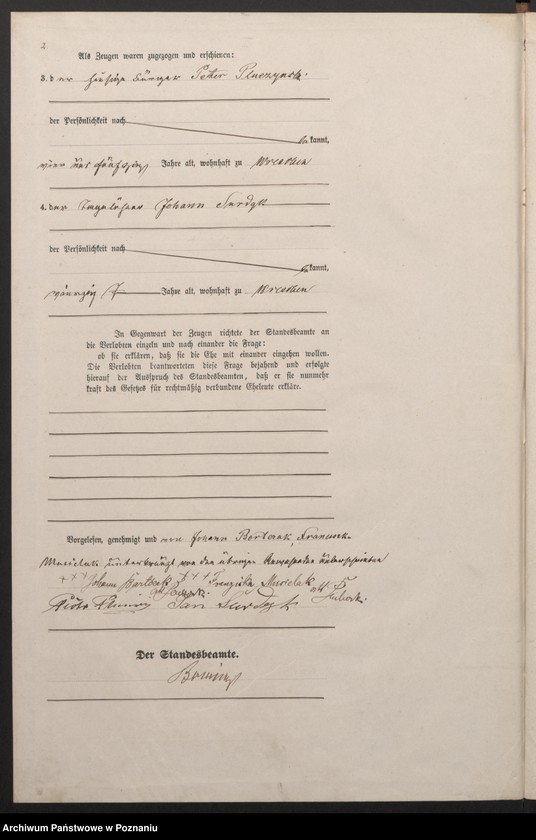 2.
Als Zeugen waren zugezogen und erschienen:
3. der hiesige Bürger Peter
der Persönlichkeit nach
bekannt,
vier und fünfzig Jahre alt, wohnhaft zu Wreschen
4. der Tagelöhner Johann Surdyk
der Persönlichkeit nach
bekannt,
vierzig Jahre alt, wohnhaft zu Wreschen
In Gegenwart der Zeugen richtete der Standesbeamte an
die Verlobten einzeln und nach einander die Frage:
ob sie erklären, daß sie die Ehe mit einander eingehen wollen.
Die Verlobten beantworteten diese Frage bejahend und erfolgte
hierauf der Ausspruch des Standesbeamten, daß er sie nunmehr
kraft des Gesetzes für rechtmäßig verbundene Eheleute erkläre.
Vorgelesen, genehmigt und von Johann
unterkreuzt von den übrigen unterschrieben
+++ Johann +++ Franziska Musielak
Piotr Jan Surdyk
Der Standesbeamte.
Archiwum Państwowe w Poznaniu